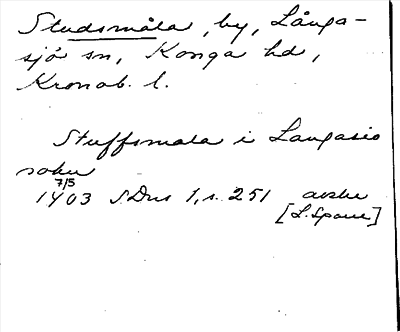 Studsmåla, by, Långa-
sjö sn, Konga hd,
Kronob. l.
Stuffsmala i Langasio
sokn
7/5
1403 SDns 1, s. 251 avskr
[L. Sparre]